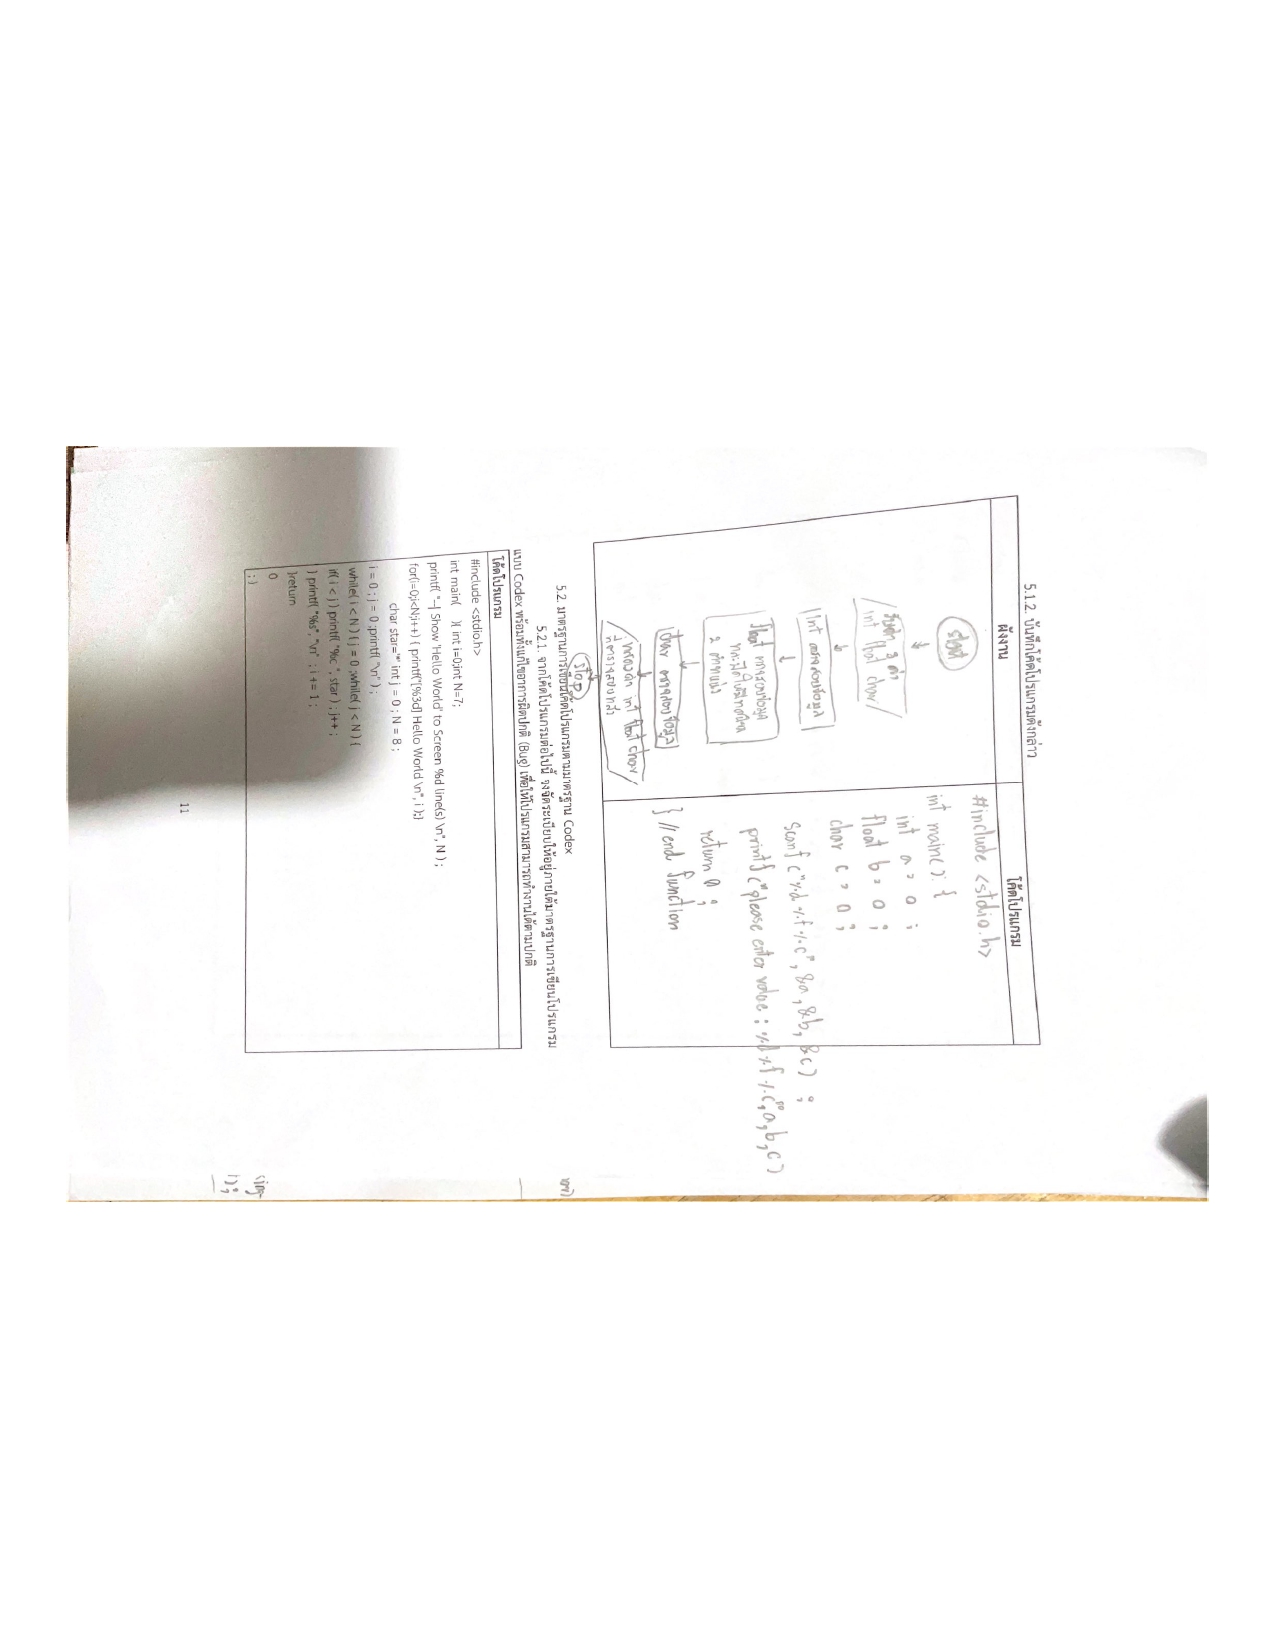 5.1.2. บันทึกโค้ดโปรแกรมดังกล่าว
ผังงาน
โค้ดโปรแกรม
start
รับค่า 3 ค่า
int float char
int ตรวจสอบข้อมูล
float ตรวจสอบข้อมูล
และปิดให้มีทศนิยม
2 ตำแหน่ง
char ตรวจสอบข้อมูล
แสดงค่า int float char
ที่ตรวจสอบแล้ว
stop
#include <stdio.h>
int main() {
int a = 0 ;
float b = 0 ;
char c = 0 ;
scanf ("%d %f %c", &a, &b, &c) ;
printf ("please enter value : %d %f %c",a,b,c)
return 0 ;
} // end function
5.2. มาตรฐานการเขียนโค้ดโปรแกรมตามมาตรฐาน Codex
5.2.1. จากโค้ดโปรแกรมต่อไปนี้ จงจัดระเบียบให้อยู่ภายใต้มาตรฐานการเขียนโปรแกรม
แบบ Codex พร้อมทั้งแก้ไขอาการผิดปกติ (Bug) เพื่อให้โปรแกรมสามารถทำงานได้ตามปกติ
โค้ดโปรแกรม
#include <stdio.h>
int main( ){ int i=0;int N=7;
printf( "--| Show 'Hello World' to Screen %d line(s) \n", N ) ;
for(i=0;i<N;i++) { printf("[%3d] Hello World \n", i );}
char star='*' int j = 0 ; N = 8 ;
i = 0 ; j = 0 ;printf( "\n" ) ;
while( i < N ) { j = 0 ;while( j < N ) {
if( i < j ) printf( "%c ", star ) ; j++ ;
} printf( "%s", "\n" ; i += 1 ;
}return
0
; }
sing-
);
11